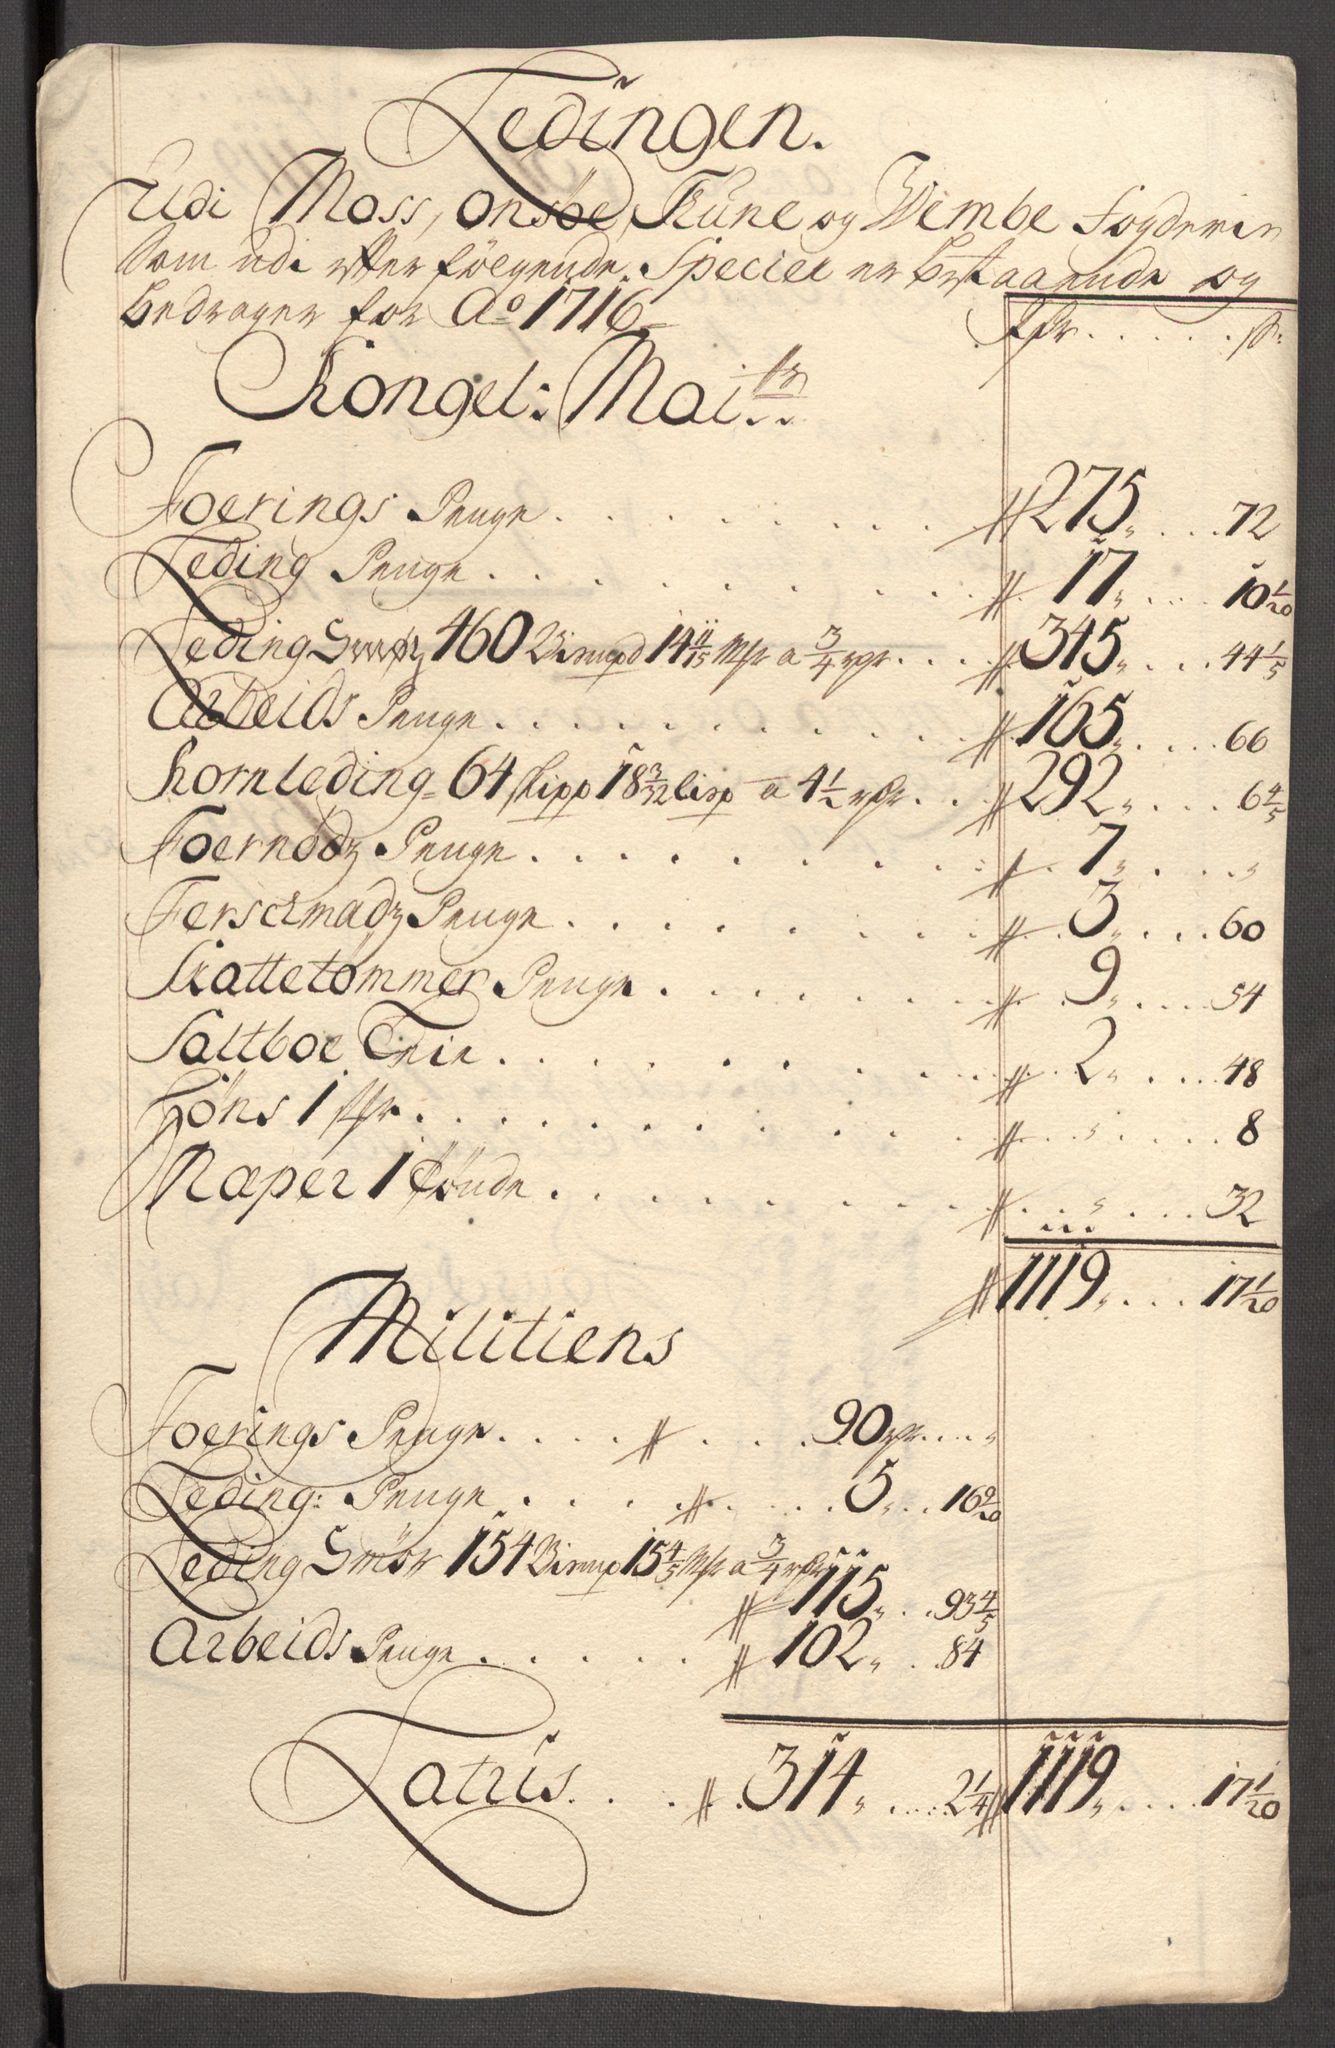 Ledingen.
Udi Moss, onsöe, Tune og Wembe fogderie
Som udi efter fölgende Specier er bestaaende og
bedrager for Ao 1716
Rdr ..... ß:
Kongel: Mai:ts
Foerings Penge ......... # 275„ .... 72
Leding Penge ......... # 17„ .... 10 1/20
Leding Smör 460 Bismpd 14 11/15 Mrk a 3/4 rdr ... # 345„ .... 44 1/5
Arbeids Penge ......... # 165„ .... 66
Kornleding 64 skipp 18 3/32 lisp a 4 1/2 rdr ... # 292„ .... 6 4/5
Foernödz Penge ......... # 7„ .... „
Ferschmadz Penge ......... # 3„ .... 60
Skattetömmer Penge ......... # 9„ .... 54
Saltboe Leie ......... # 2„ .... 48
Höns 1 ......... # „ .... 8
Næper 1 tönde ......... # „ .... 32
# 1119„ .... 17 1/20
Militiens
Foerings Penge .... # .... 90 rdr .... „
Leding: Penge .... # .... 5„ .. 16 9/20
Leding Smör 154 Bismp 15 4/5 Mrk a 3/4 rdr
# 115„ .. 93 4/5
Arbeids Penge ..... # 102„ .. 84
Latris ... # 314„ .... 2 1/4 # 1119„ .... 17 1/20